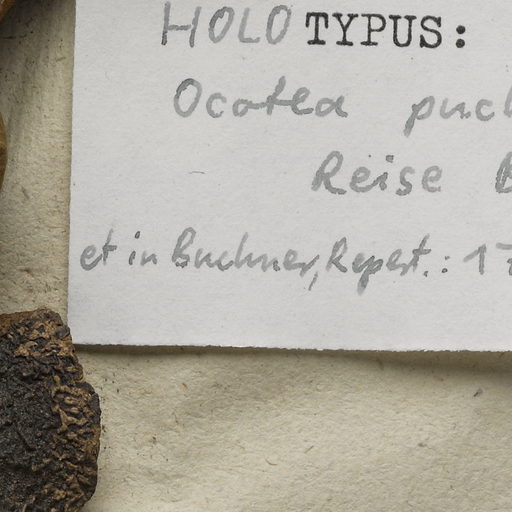 HOLOTYPUS:
Ocotea puch
Reise B
et in Buchner, Repert.: 17